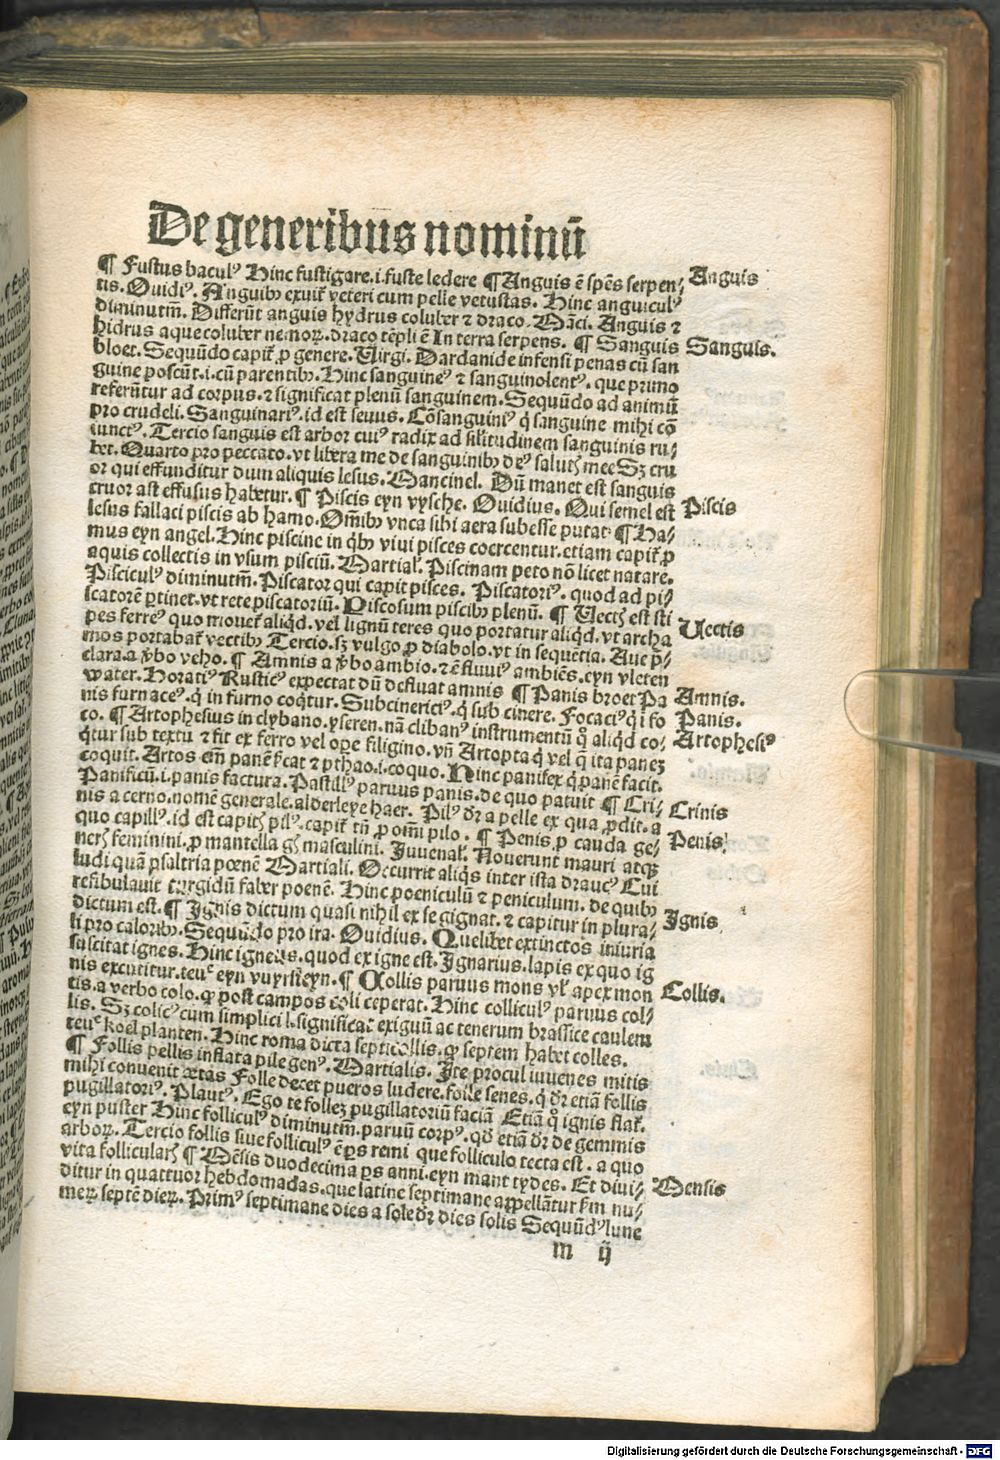 De generibus nominū
¶ Fustus baculꝰ Hinc fustigare.i.fuste ledere ¶ Anguis ē spēs serpen⸗ Anguis
tis. Ouidiꝰ. Anguibꝫ exuit̉ veteri cum pelle vetustas. Hinc anguiculꝰ
diminutm̄. Differūt anguis hydrus coluber ⁊ draco. Māci. Anguis ⁊
hidrus aque coluber nemoꝝ.draco tēpli ē In terra serpens. ¶ Sanguis Sanguis.
bloet. Sequūdo capit̉ ꝓ genere. Uirgi. Dardanide infensi penas cū san
guine poscūt.i.cū parentibꝫ. Hinc sanguineꝰ ⁊ sanguinolentꝰ. que primo
referūtur ad corpus.⁊ significat plenū sanguinem. Sequūdo ad animū
pro crudeli. Sanguinariꝰ.id est seuus. Cōsanguiniꝰ q̇ sanguine mihi cō
iunctꝰ. Tercio sanguis est arbor cuiꝰ radix ad silitudinem sanguinis ru⸗
bet. Quarto pro peccato.vt libera me de sanguinibꝫ deꝰ salutꝭ mee Sꝫ cru
or qui effunditur dum aliquis lesus. Mancinel. Dū manet est sanguis
cruor ast effusus habetur. ¶ Piscis eyn vysche. Ouidius. Qui semel est Piscis
lesus fallaci piscis ab hamo. Oībꝫ vnca sibi aera subesse putat ¶ Ha⸗
mus eyn angel. Hinc piscine in q̇bꝫ viui pisces coercentur.etiam capit̉ ꝓ
aquis collectis in vsum pisciū. Martial̉. Piscinam peto nō licet natare.
Pisciculꝰ diminutm̄. Piscator qui capit pisces. Piscatoriꝰ. quod ad pi⸗
scatorē ꝑtinet.vt rete piscatoriū. Piscosum piscibꝫ plenū. ¶ Uectꝭ est sti Uectis
pes ferreꝰ quo mouet̉ aliq̇d.vel lignū teres quo portatur aliq̇d.vt archa
mos portabat̉ vectibꝫ Tercio.sꝫ vulgo ꝓ diabolo.vt in sequentia. Aue p̄⸗
clara.a v̓bo veho. ¶ Amnis a v̓bo ambio.⁊ ē fluuiꝰ ambiēs.eyn vleten Amnis.
water. Horatiꝰ Rusticꝰ expectat dū defluat amnis ¶ Panis broet Pa Panis.
nis furnaceꝰ.q̇ in furno coq̇tur. Subcinericiꝰ.q̇ sub cinere. Focaciꝰ q̇ i fo
co. ¶ Artophesius in clybano.yseren.nā clibanꝰ instrumentū q̊ aliq̇d co⸗ Artophesiꝰ
q̇tur sub textu ⁊ fit ex ferro vel oꝑe filigino.vn̄ Artopta q̇ vel q̄ ita paneꝫ
coquit. Artos em̄ panē s̓cat ⁊ pthao.i.coquo. Hinc panifex q̇ panē facit.
Panificū.i.panis factura. Pastillꝰ paruus panis.de quo patuit ¶ Cri⸗ Crinis
nis a cerno.nomē generale.alderleye haer. Pilꝰ dr̄ a pelle ex qua ꝓdit.a
quo capillꝰ.id est capitꝭ pilꝰ.capit̉ tn̄ ꝓ omī pilo. ¶ Penis ꝓ cauda ge⸗ Penis
nerꝭ feminini.ꝓ mantella gn̄s masculini. Juuenal̉. Nouerunt mauri atqꝫ
ludi quā psaltria pœnē Martiali. Occurrit aliq̇s inter ista draucꝰ Cui
refibulauit turgidū faber poenē. Hinc poeniculū ⁊ peniculum.de quibꝫ
dictum est. ¶ Jgnis dictum quasi nihil ex se gignat.⁊ capitur in plura⸗ Jgnis
li pro caloribꝫ. Sequūdo pro ira. Ouidius. Quelibet extinctos iniuria
suscitat ignes. Hinc igneꝰ.quod ex igne est. Jgnarius.lapis ex quo ig
nis excutitur.teuc̓ eyn vuyrsteyn. ¶ Collis paruus mons vl̓ apex mon Collis.
tis.a verbo colo.ꝙ post campos coli ceperat. Hinc colliculꝰ paruus col⸗
lis. Sꝫ colicꝰ cum simplici l.significat exiguū ac tenerum brassice caulem
teuc̓ koel planten. Hinc roma dicta septicollis.ꝙ septem habet colles.
¶ Follis pellis inflata pile genꝰ. Martialis. Jte procul iuuenes mitis
mihi conuenit etas Folle decet pueros ludere.folle senes.q̇ dr̄ etiā follis
pugillatoriꝰ. Plautꝰ. Ego te folleꝫ pugillatoriū faciā Etiā q̊ ignis flat̉.
eyn puster Hinc folliculꝰ diminutm̄.paruū corpꝰ.qd̓ etiā dr̄ de gemmis
arboꝝ. Tercio follis siue folliculꝰ ē ꝑs remi que folliculo tecta est.a quo
vita follicularꝭ ¶ Mēsis duodecima ꝑs anni.eyn mant tydes. Et diui⸗ Mensis
ditur in quattuor hebdomadas.que latine septimane appellātur s̓m nu⸗
meꝝ septē dieꝝ. Primꝰ septimane dies a sole dr̄ dies solis Sequūdꝰ lune
m ij
Digitalisierung gefördert durch die Deutsche Forschungsgemeinschaft - DFG